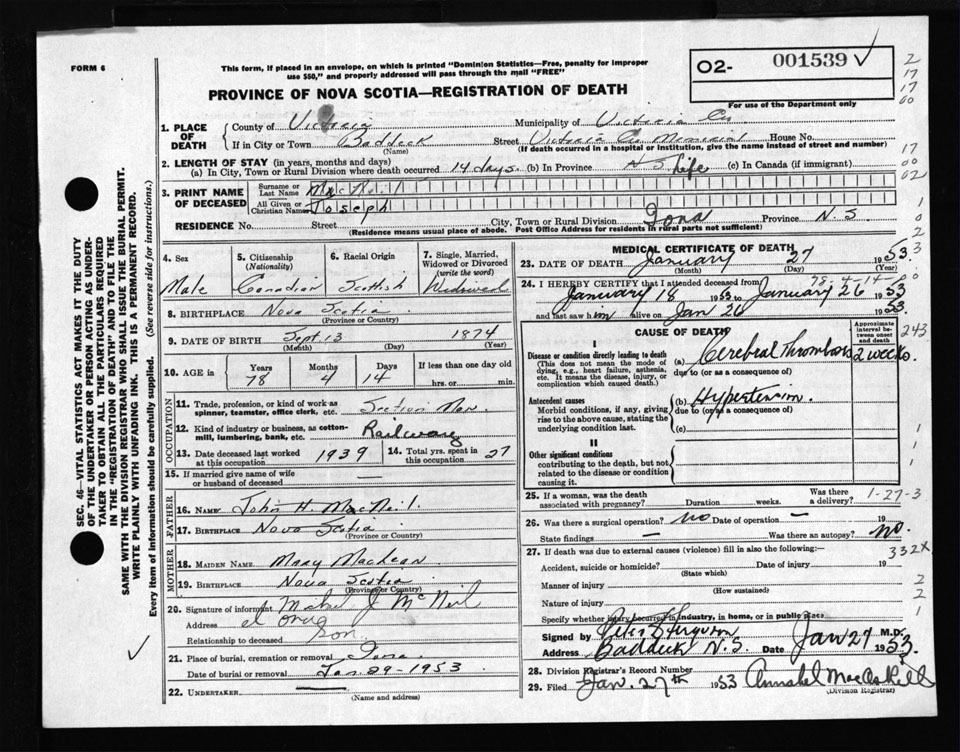 FORM 6
This form, if placed in an envelope, on which is printed "Dominion Statistics—Free, penalty for improper
use $50," and properly addressed will pass through the mail "FREE"
O2- 001539
For use of the Department only
PROVINCE OF NOVA SCOTIA—REGISTRATION OF DEATH
1. PLACE OF DEATH
County of Victoria Municipality of Victoria Co
If in City or Town Baddeck Street Victoria Co Memorial House No.
(Name) (If death occurred in a hospital or institution, give the name instead of street and number)
2. LENGTH OF STAY (in years, months and days)
(a) In City, Town or Rural Division where death occurred 14 days. (b) In Province Life (c) In Canada (if immigrant)
3. PRINT NAME OF DECEASED
Surname or Last Name MacNeil
All Given or Christian Names Joseph
RESIDENCE No. Street City, Town or Rural Division Iona Province N.S.
(Residence means usual place of abode. Post Office Address for residents in rural parts not sufficient)
4. Sex Male
5. Citizenship (Nationality) Canadian
6. Racial Origin Scottish
7. Single, Married, Widowed or Divorced (write the word) Widowed
8. BIRTHPLACE Nova Scotia
(Province or Country)
9. DATE OF BIRTH Sept 13 1874
(Month) (Day) (Year)
10. AGE in Years 78 Months 4 Days 14 If less than one day old hrs. or min.
OCCUPATION
11. Trade, profession or kind of work as spinner, teamster, office clerk, etc. Section Man
12. Kind of industry or business, as cotton-mill, lumbering, bank, etc. Railway
13. Date deceased last worked at this occupation 1939
14. Total yrs. spent in this occupation 27
15. If married give name of wife or husband of deceased
FATHER
16. NAME John H. MacNeil.
17. BIRTHPLACE Nova Scotia
(Province or Country)
MOTHER
18. MAIDEN NAME Mary MacLean
19. BIRTHPLACE Nova Scotia
(Province or Country)
20. Signature of informant J. McNeil
Address Iona
Relationship to deceased Son.
21. Place of burial, cremation or removal Iona
Date of burial or removal Jan. 29-1953
22. UNDERTAKER —
(Name and address)
MEDICAL CERTIFICATE OF DEATH
23. DATE OF DEATH January 27 1953
(Month) (Day) (Year)
24. I HEREBY CERTIFY that I attended deceased from 78-4-14
January 18 1953 to January 26 1953
and last saw him alive on Jan 26 1953.
CAUSE OF DEATH
Approximate interval between onset and death
I
Disease or condition directly leading to death
(This does not mean the mode of dying, e.g., heart failure, asthenia, etc. It means the disease, injury, or complication which caused death.)
(a) Cerebral Thrombosis 2 weeks.
due to (or as a consequence of)
Antecedent causes
Morbid conditions, if any, giving rise to the above cause, stating the underlying condition last.
(b) Hypertension.
due to (or as a consequence of)
(c)
II
Other significant conditions
contributing to the death, but not related to the disease or condition causing it.
25. If a woman, was the death associated with pregnancy? Duration weeks. Was there a delivery?
1-27-3
26. Was there a surgical operation? no Date of operation — 19
State findings — Was there an autopsy? no.
27. If death was due to external causes (violence) fill in also the following:—
332X
Accident, suicide or homicide? Date of injury 19
(State which)
Manner of injury
(How sustained)
Nature of injury
Specify whether injury occurred in industry, in home, or in public place
Signed by Ferguson M.D.
Address Baddeck N.S. Date Jan 27 1953.
28. Division Registrar's Record Number
29. Filed Jan. 27th 1953 Annabel MacAskill
(Division Registrar)
SEC. 46—VITAL STATISTICS ACT MAKES IT THE DUTY
OF THE UNDERTAKER OR PERSON ACTING AS UNDER-
TAKER TO OBTAIN ALL THE PARTICULARS REQUIRED
IN THE "REGISTRATION OF DEATH" AND TO FILE THE
SAME WITH THE DIVISION REGISTRAR WHO SHALL ISSUE THE BURIAL PERMIT.
WRITE PLAINLY WITH UNFADING INK. THIS IS A PERMANENT RECORD.
Every item of information should be carefully supplied. (See reverse side for instructions.)
2
17
17
00
17
00
02
243